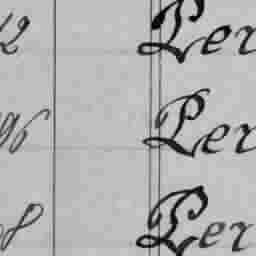 12 Per
96 Per
8 Per